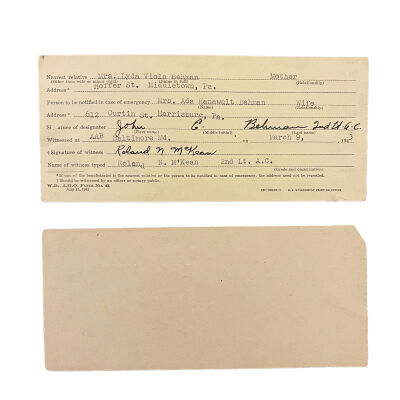 Nearest relative Mrs. Lyda Viola Behman Mother
(Other than wife or minor child) (Name in full) (Relationship)
Address* Hoffer St. Middletown, Pa.
Person to be notified in case of emergency Mrs. Ada Hanawalt Behman Wife
(Name) (Relationship)
Address* 612 Curtin St. Harrisburg, Pa.
Si ature of designator John E. Behman 2nd Lt A.C.
(First name) (Middle initial) (Last name)
Witnessed at AAB Baltimore Md. on March 9, 1943
† Signature of witness Roland N McKean
Name of witness typed Roland N. M'Kean 2nd Lt. A.C.
(Grade and organization)
* If one of the beneficiaries is the nearest relative or the person to be notified in case of emergency, the address need not be repeated.
† Should be witnessed by an officer or notary public.
W.D., A.G.O. Form No. 41
U. S. GOVERNMENT PRINTING OFFICE